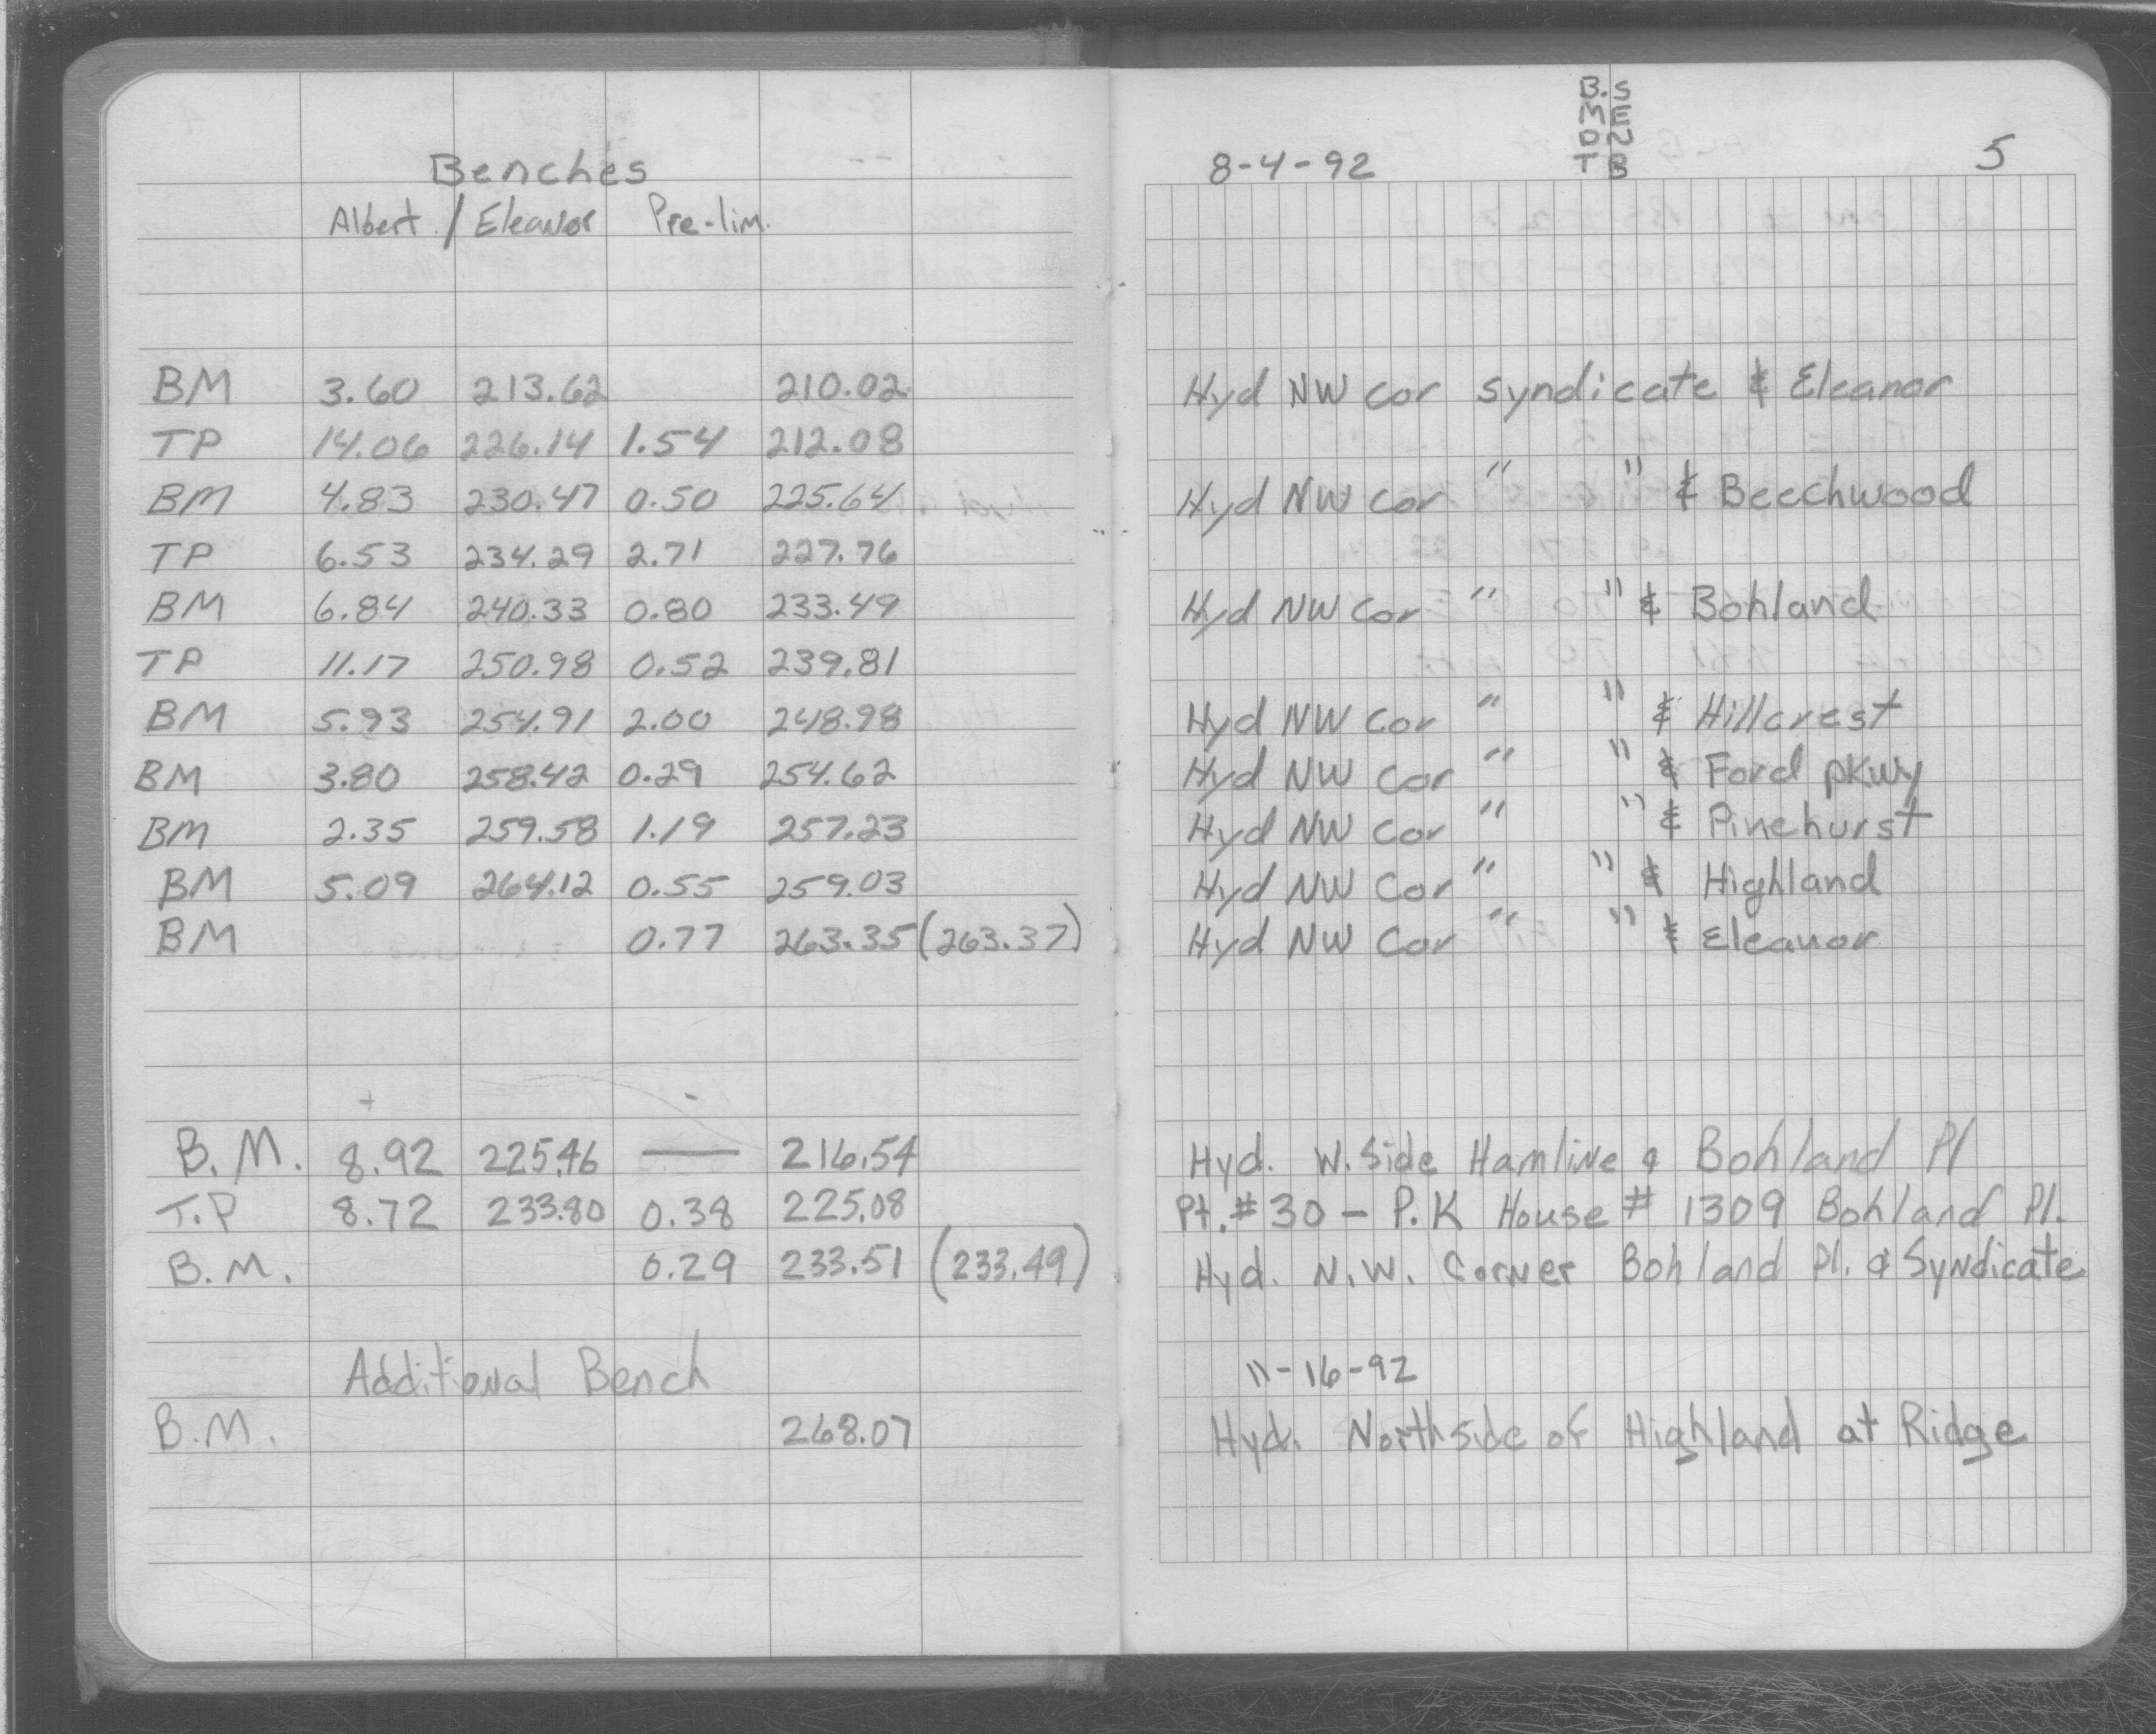 Benches
Albert / Eleanor Pre-lim.
BM 3.60 213.62 210.02
TP 14.06 226.14 1.54 212.08
BM 4.83 230.47 0.50 225.64
TP 6.53 234.29 2.71 227.76
BM 6.84 240.33 0.80 233.49
TP 11.17 250.98 0.52 239.81
BM 5.93 254.91 2.00 248.98
BM 3.80 258.42 0.29 254.62
BM 2.35 259.58 1.19 257.23
BM 5.09 264.12 0.55 259.03
BM 0.77 263.35 (263.37)
+ -
B.M. 8.92 225.46 — 216.54
T.P 8.72 233.80 0.38 225.08
B.M. 0.29 233.51 (233.49)
Additional Bench
B.M. 268.07
B.S
M E
D N
8-4-92 T B 5
Hyd NW cor Syndicate & Eleanor
Hyd NW cor " " & Beechwood
Hyd NW cor " " & Bohland
Hyd NW cor " " & Hillcrest
Hyd NW cor " " & Ford pkwy
Hyd NW cor " " & Pinehurst
Hyd NW cor " " & Highland
Hyd NW cor " " & Eleanor
Hyd. W. Side Hamline & Bohland Pl
Pt. #30 - P.K House # 1309 Bohland Pl.
Hyd. N.W. Corner Bohland Pl. & Syndicate
11-16-92
Hyd. North side of Highland at Ridge